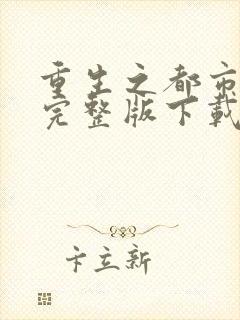 重生之都市
完整版下载
卞立新